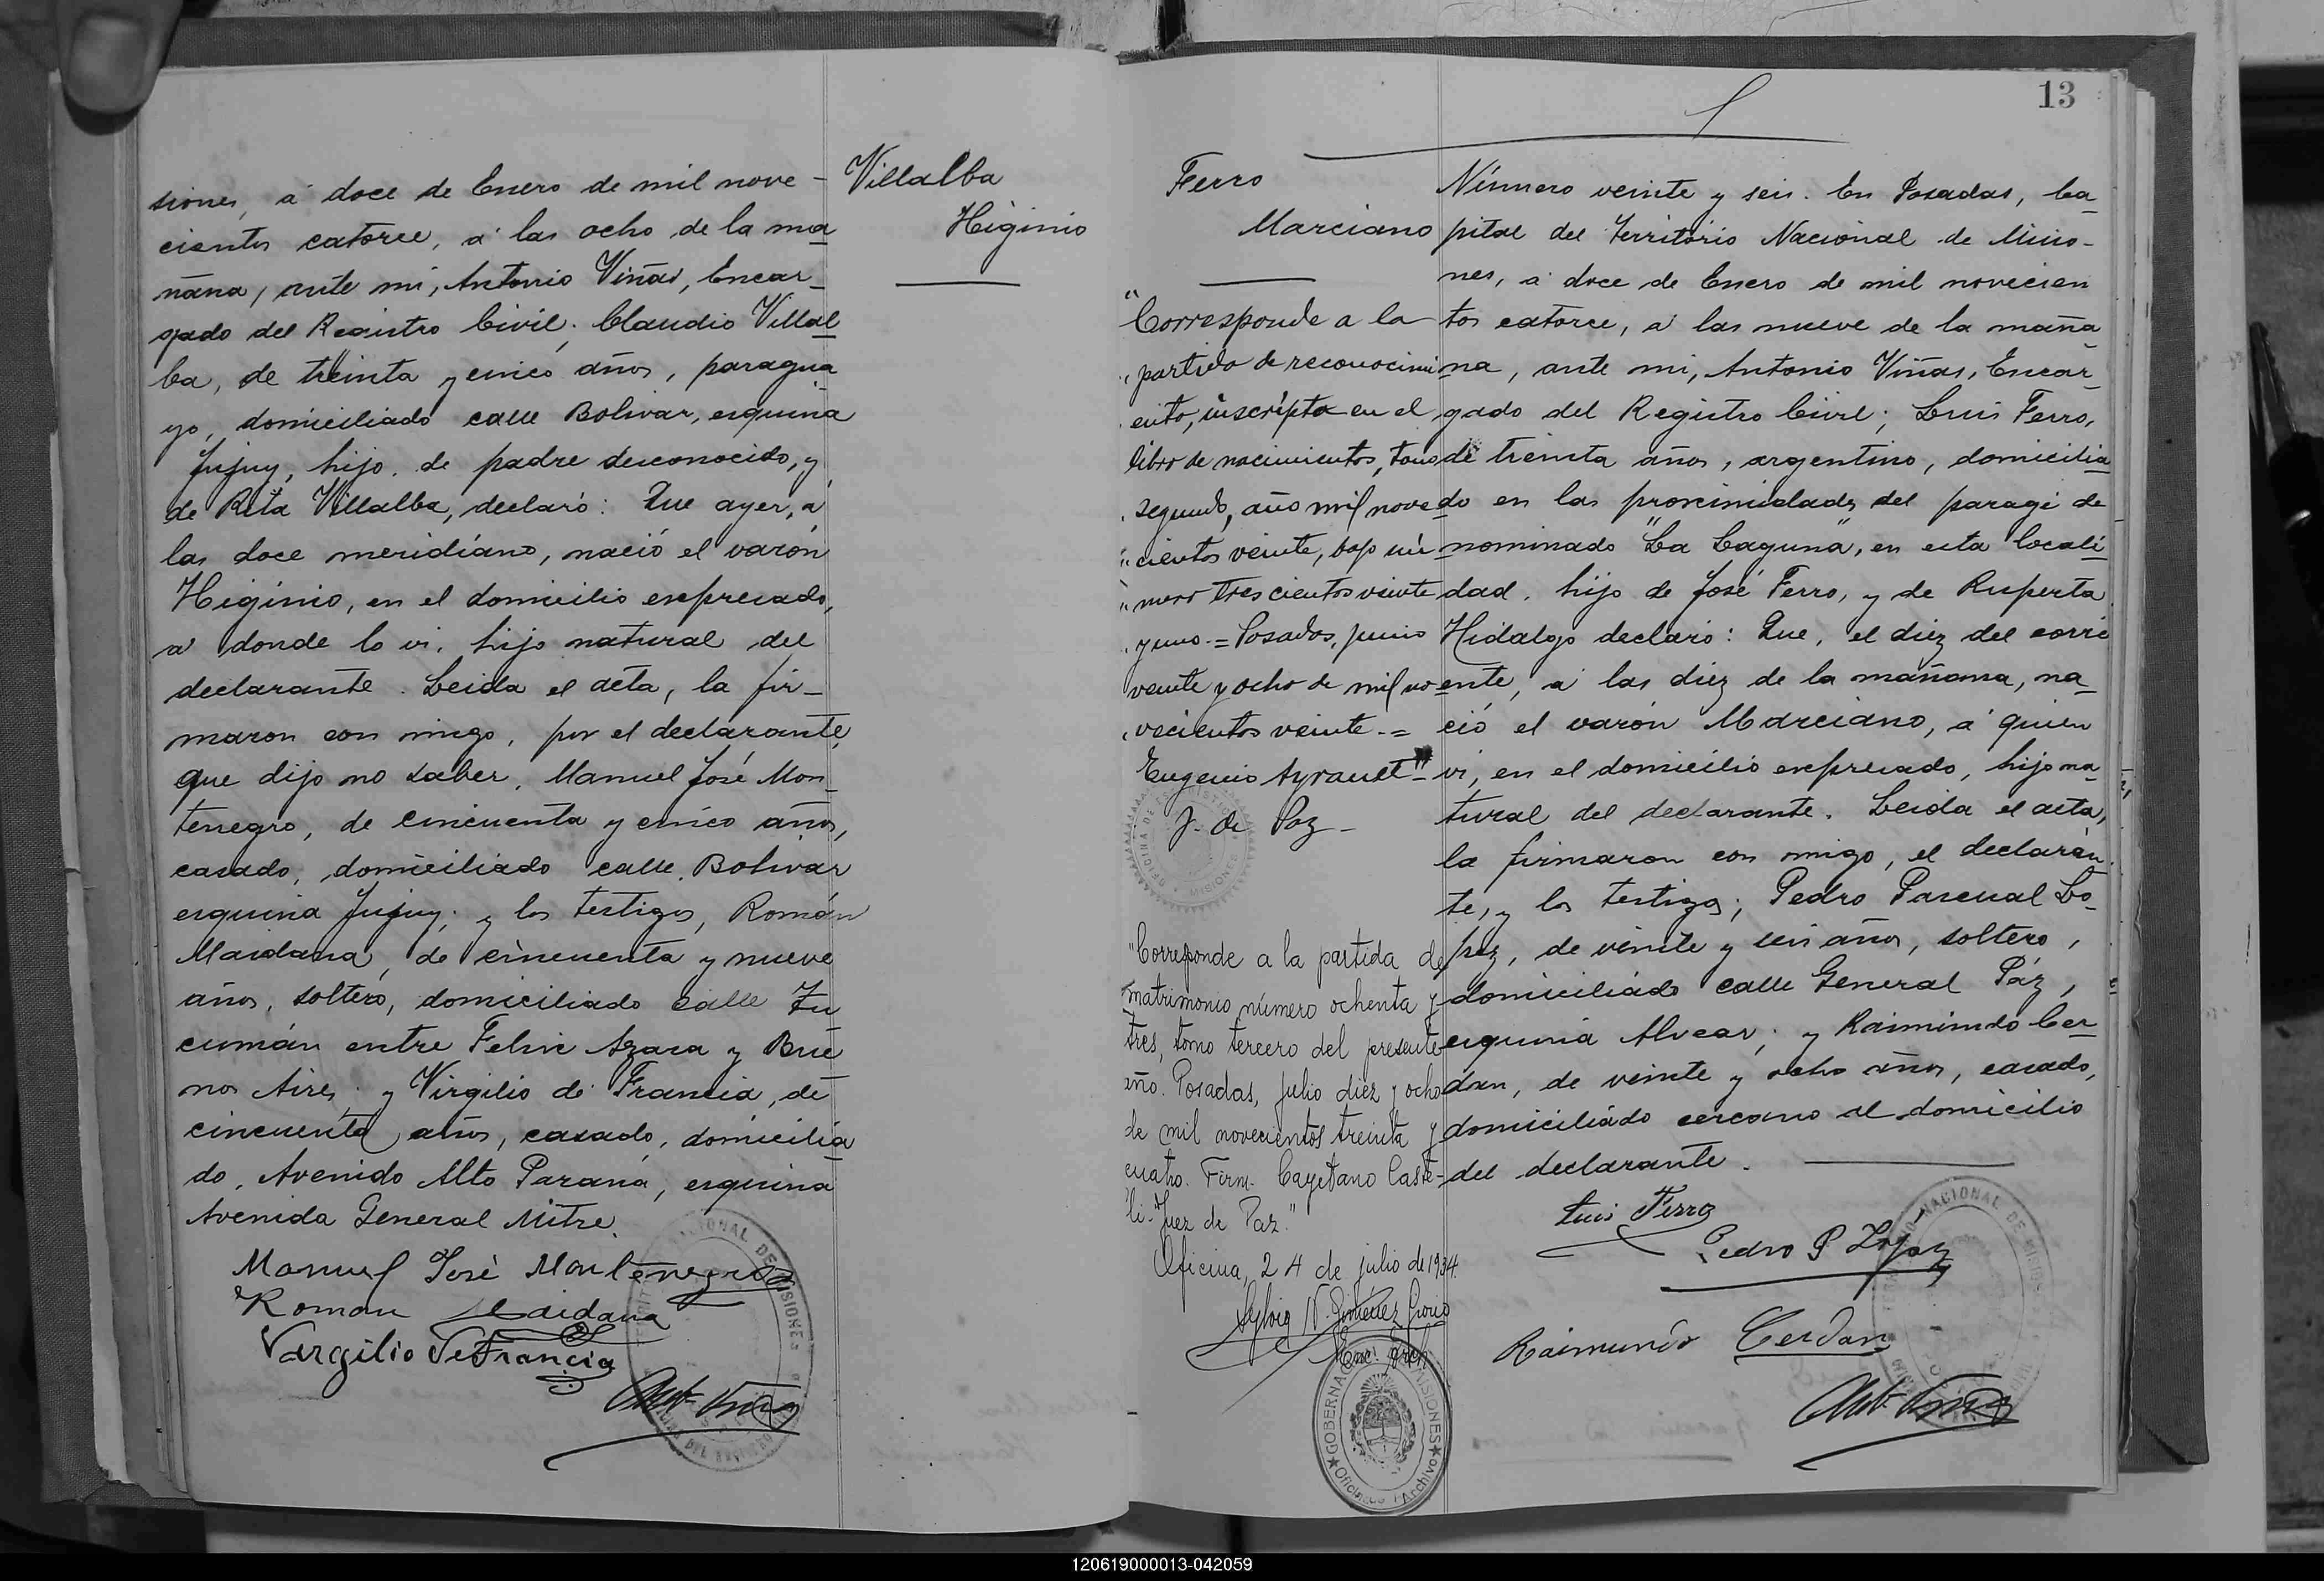 siones, á doce de Enero de mil nove-
cientos catorce, á las ocho de la ma
ñana, ante mi, Antonio Viñas, Encar-
gado del Registro Civil; Claudio Villal
ba, de treinta y cinco años, paragua
yo, domiciliado calle Bolivar, esquina
Jujuy, hijo de padre desconocido, y
de Rita Villalba, declaró: Que ayer, á
las doce meridiano, nació el varón
Higinio, en el domicilio expresado,
á donde lo vi, hijo natural del
declarante. Leida el acta, la fir-
maron con migo, por el declarante,
que dijo no saber, Manuel José Mon
tenegro, de cincuenta y cinco años,
casado, domiciliado calle Bolivar
esquina Jujuy; y los testigos, Román
Maidana, de cincuenta y nueve
años, soltero, domiciliado calle Tu
cumán entre Felix Azara y Bue
nos Aires; y Virgilio de Francia, de
cincuenta años, casado, domicilia
do, Avenido Alto Paraná, esquina
Avenida General Mitre.
Manuel José Montenegro
Roman Maidana
Vargilio De Francia
Ant. Viñas
Villalba
Higinio
13
Ferro
Marciano
"Corresponde a la
partido de reconocimi
ento, inscripta en el
libro de nacimientos, tomo
segundo, año mil nove
cientos veinte, bajo nú
mero trescientos veinte
y uno.= Posadas, junio
veinte y ocho de mil no
vecientos veinte.=
Eugenio Ayrault"
J. de Paz-
OFICINA DE ESTADISTICA
MISIONES
"Correponde a la partida de
matrimonio número ochenta y
tres, tomo tercero del presente
año. Posadas, julio diez y ocho
de mil novecientos treinta y
cuatro. Firm. Cayetano Caste-
li-Juez de Paz."
Oficina, 24 de julio de 1934.
Enc. Arch.
GOBERNACION MISIONES
Oficina de Archivo
Número veinte y seis. En Posadas, Ca
pital del Territorio Nacional de Misio-
nes, á doce de Enero de mil novecien
tos catorce, á las nueve de la maña
na, ante mi, Antonio Viñas, Encar
gado del Registro Civil; Luis Ferro,
de treinta años, argentino, domicilia
do en las proximidades del parage de
nominado "La Laguna", en esta locali
dad, hijo de José Ferro, y de Ruperta
Hidalgo declaró: Que, el diez del corri
ente, á las diez de la mañana, na
ció el varón Marciano, á quien
vi, en el domicilio expresado, hijo na
tural del declarante. Leida el acta,
la firmaron con migo, el declaran
te, y los testigos; Pedro Pascual Lo
pez, de veinte y seis años, soltero,
domiciliado calle General Páz,
esquina Alvear; y Raimundo Cer
dan, de veinte y ocho años, casado,
domiciliado cercano al domicilio
del declarante.
Luis Ferro
Pedro P Lopez
Raimundo Cerdan
Ant. Viñas
120619000013-042059